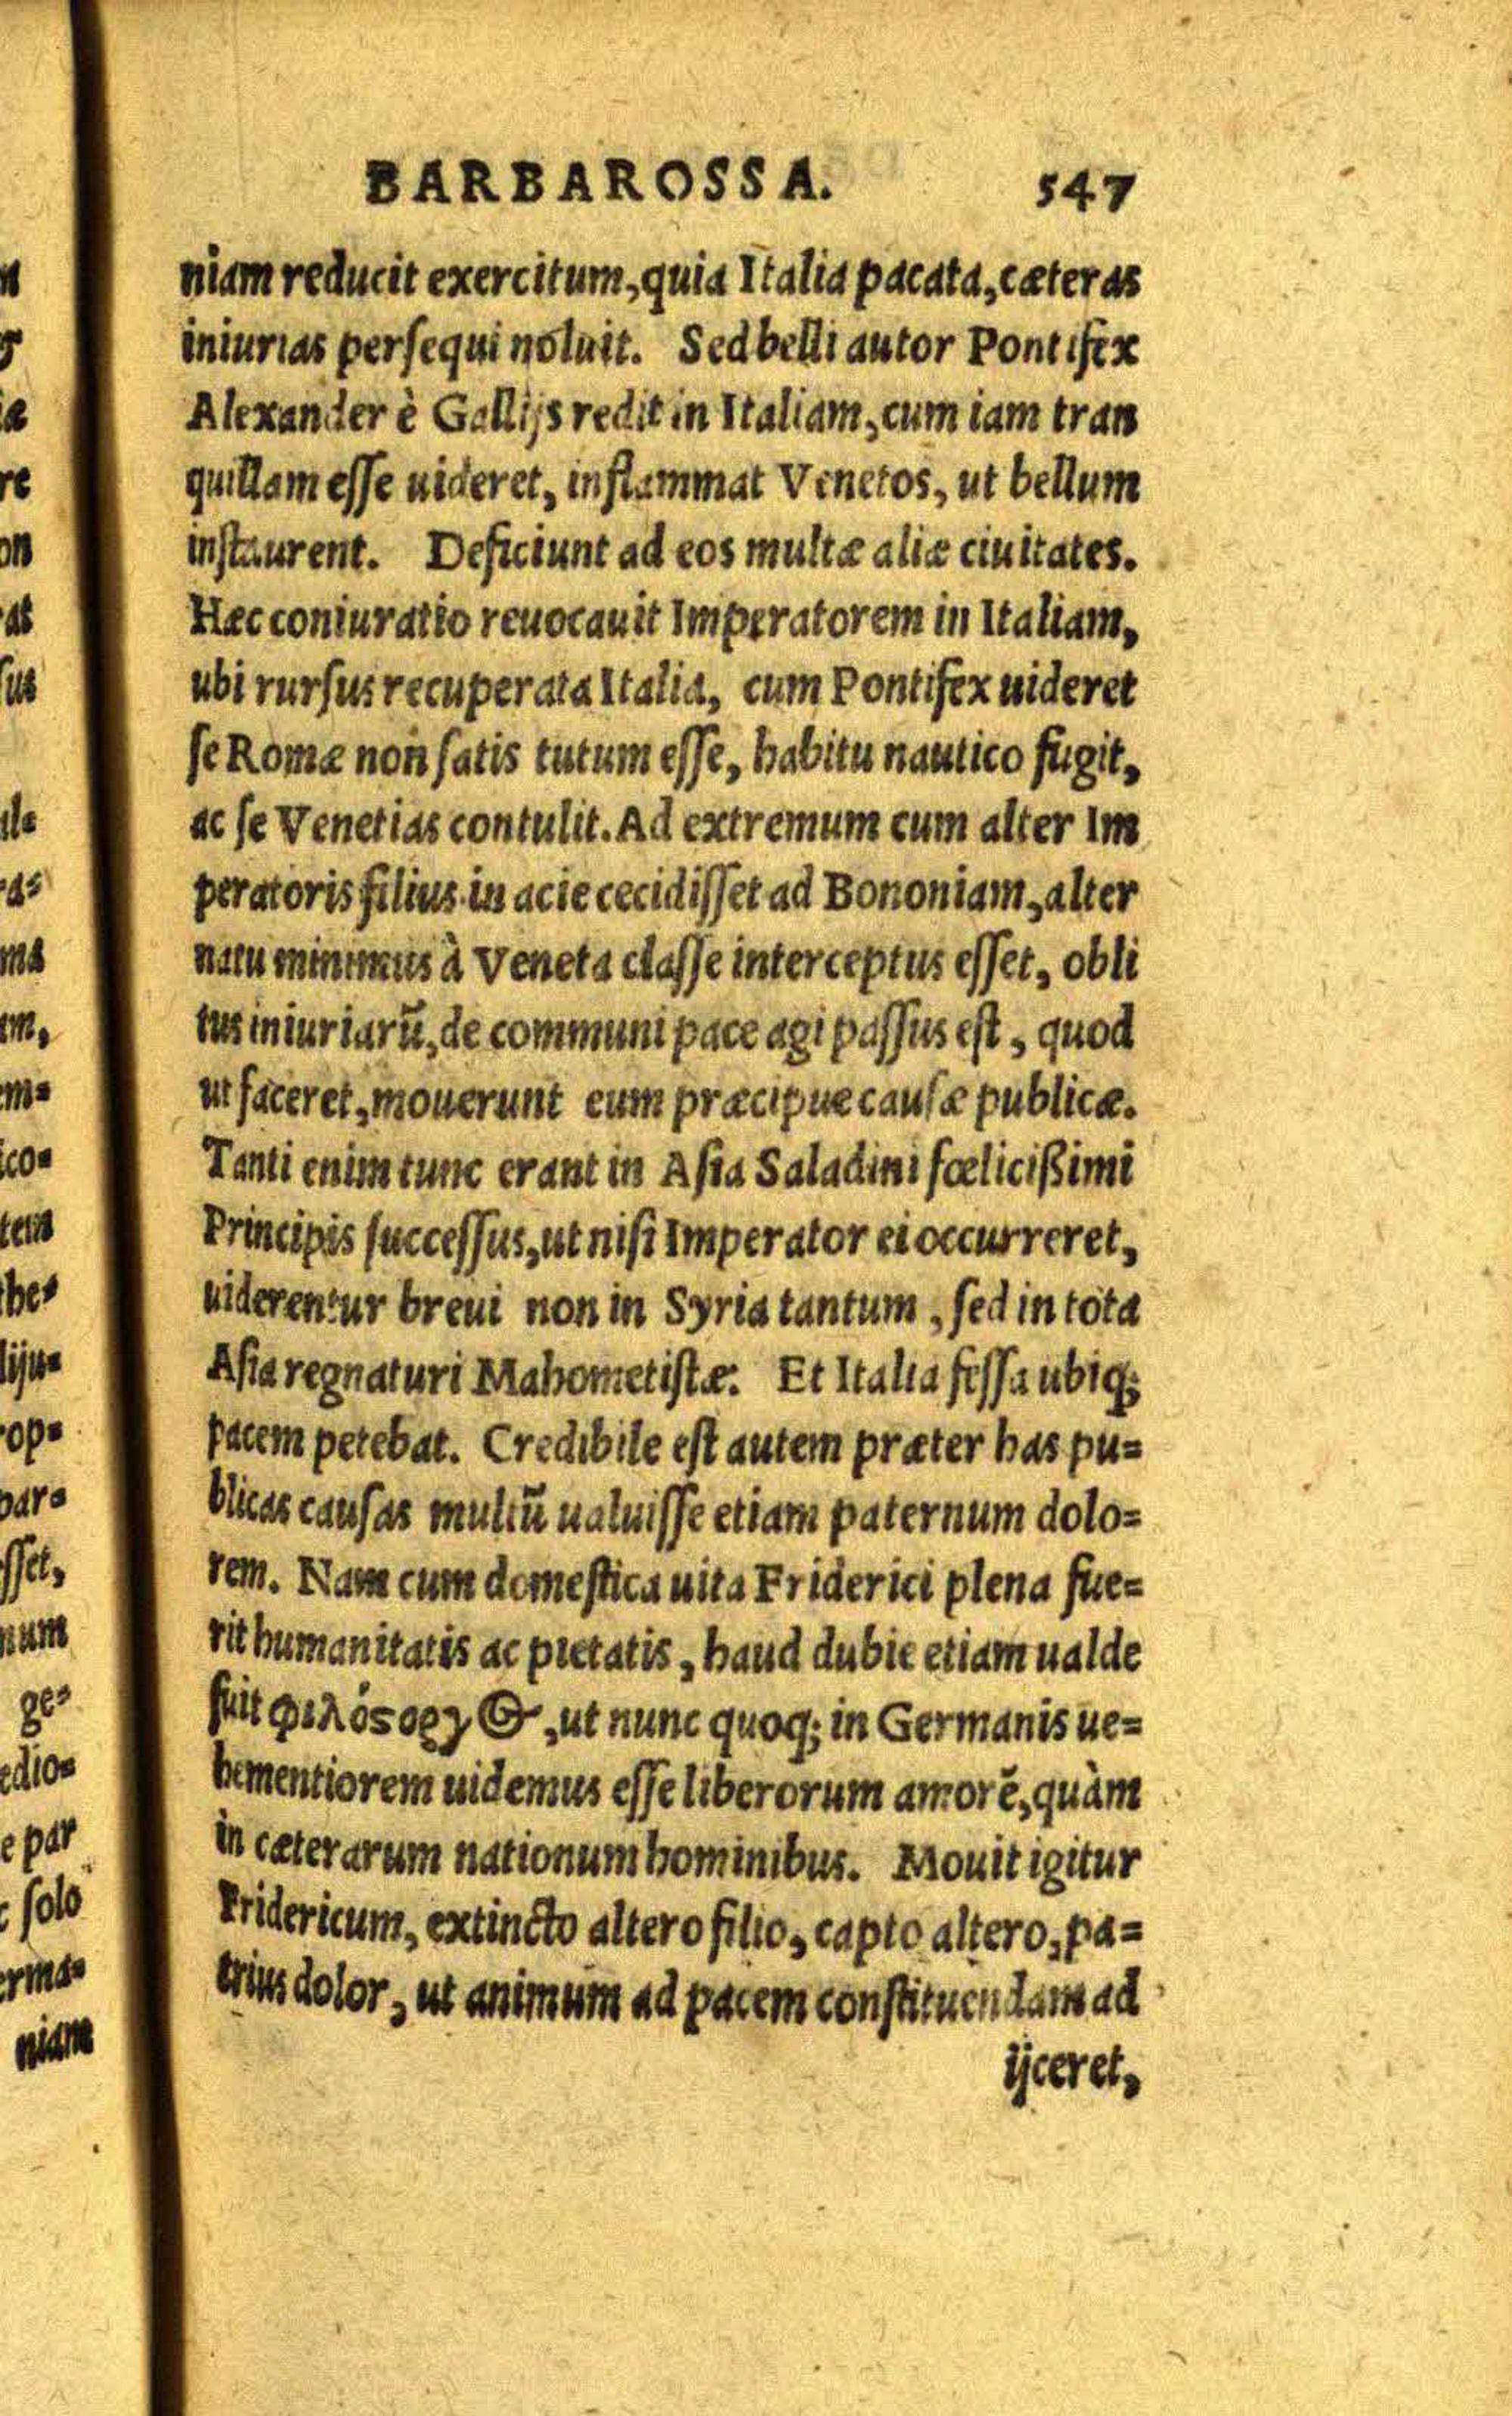 BARBAROSSA. 547
niam reducit exercitum, quia Italia pacata, cæteras
iniurias perſequi noluit. Sed belli autor Pontifex
Alexander è Gallijs redit in Italiam, cum iam tran
quillam eſſe uideret, inflammat Venetos, ut bellum
inſtaurent. Deficiunt ad eos multæ aliæ ciuitates.
Hæc coniuratio reuocauit Imperatorem in Italiam,
ubi rurſus recuperata Italia, cum Pontifex uideret
ſe Romæ non ſatis tutum eſſe, habitu nautico fugit,
ac ſe Venetias contulit. Ad extremum cum alter Im
peratoris filius in acie cecidiſſet ad Bononiam, alter
natu minimus à Veneta claſſe interceptus eſſet, obli
tus iniuriarū, de communi pace agi paſſus eſt, quod
ut faceret, mouerunt eum præcipue cauſæ publicæ.
Tanti enim tunc erant in Aſia Saladini fœlicißimi
Principis ſucceſſus, ut niſi Imperator ei occurreret,
uiderentur breui non in Syria tantum, ſed in tota
Aſia regnaturi Mahometiſtæ. Et Italia feſſa ubiq;
pacem petebat. Credibile eſt autem præter has pu=
blicas cauſas multū ualuiſſe etiam paternum dolo=
rem. Nam cum domeſtica uita Friderici plena fue=
rit humanitatis ac pietatis, haud dubie etiam ualde
fuit φιλόϛοργ⊙, ut nunc quoq; in Germanis ue=
hementiorem uidemus eſſe liberorum amorē, quàm
in cæterarum nationum hominibus. Mouit igitur
Fridericum, extincto altero filio, capto altero, pa=
trius dolor, ut animum ad pacem conſtituendam ad
ijceret,